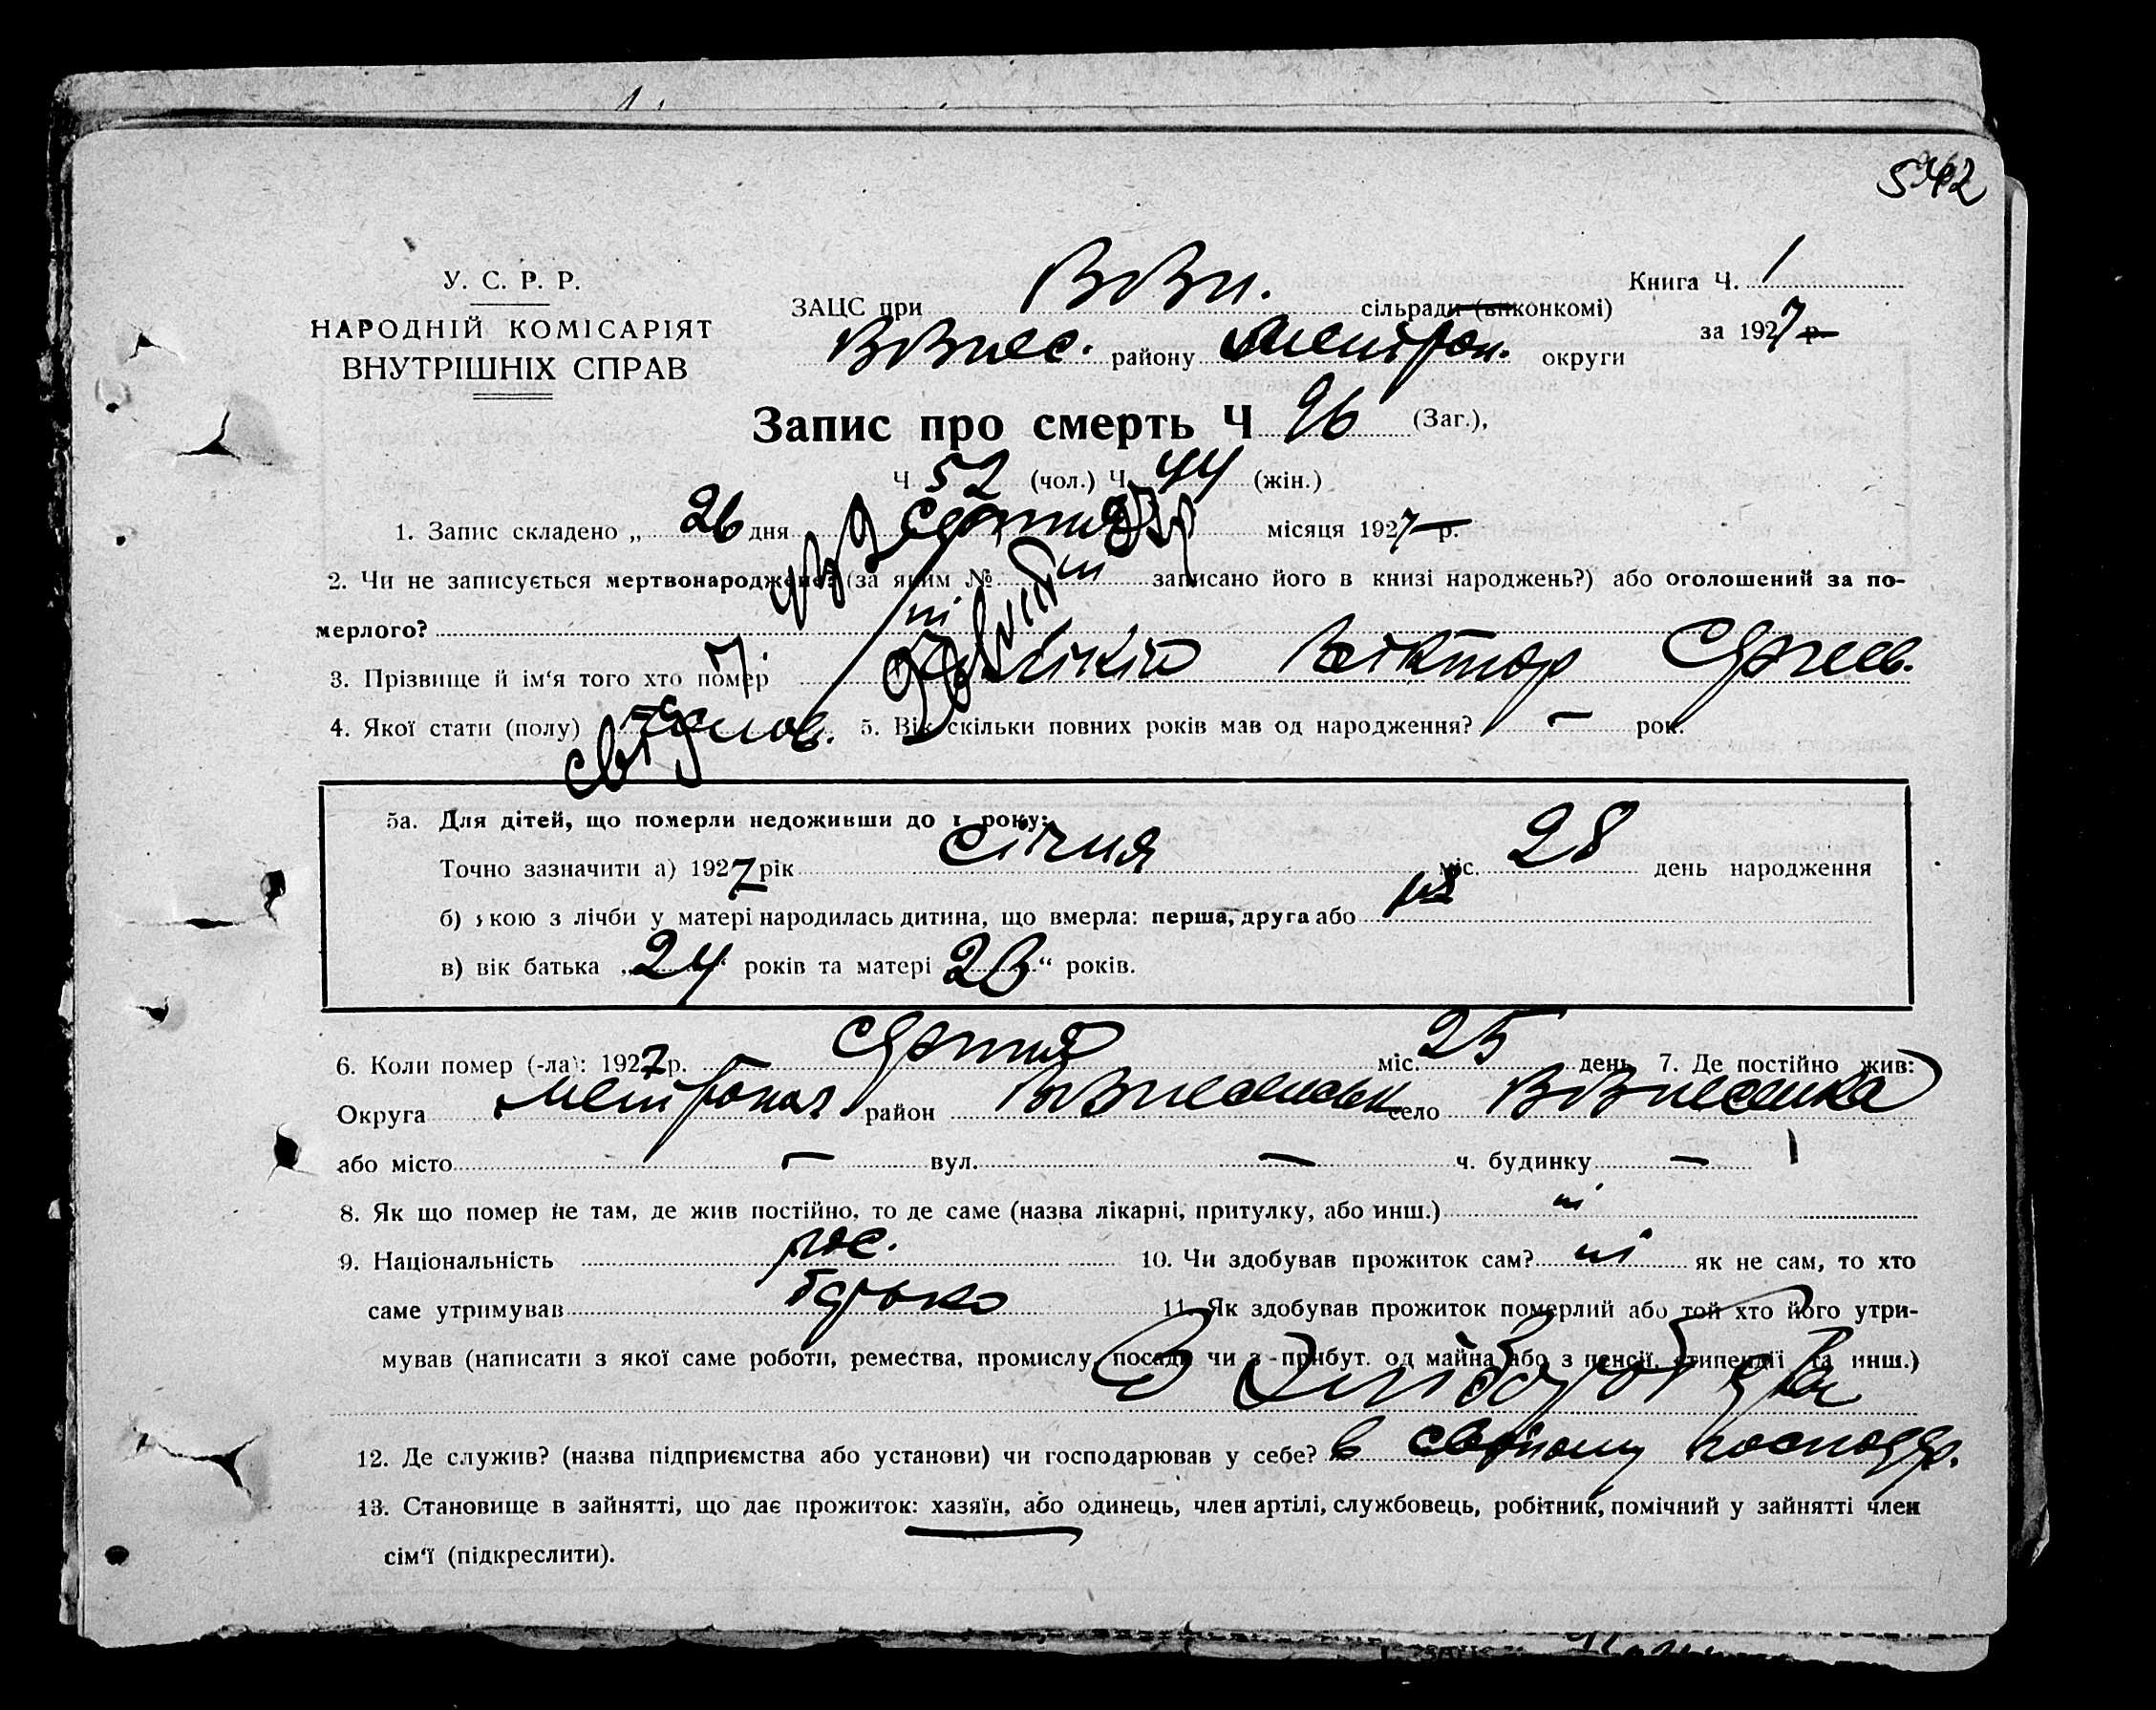 542
У. С. Р. Р.
НАРОДНІЙ КОМІСАРІЯТ
ВНУТРІШНІХ СПРАВ
ЗАЦС при ВВзн. сільради (виконкомі)
Книга Ч. 1
за 1927 р.
району округи
Запис про смерть Ч 96 (Заг.),
Ч 52 (чол.) Ч. 44 (жін.)
1. Запис складено „ 26 дня серпня місяця 1927 р.
2. Чи не записується мертвонароджене? (за яким № записано його в книзі народжень?) або оголошений за по-
мерлого? ні
3. Прізвище й ім'я того хто помер Віктор Сергіев.
4. Якої стати (полу) чолов. 5. Вік скільки повних років мав од народження? — рок.
5а. Для дітей, що померли недоживши до 1 року:
Точно зазначити а) 1927 рік січня міс. 28 день народження
б) якою з лічби у матері народилась дитина, що вмерла: перша, друга або
в) вік батька „24“ років та матері „23“ років.
6. Коли помер (-ла): 1927 р. серпня міс. 25 день 7. Де постійно жив:
Округа район село Вознесенка
або місто — вул. — ч. будинку —
8. Як що помер не там, де жив постійно, то де саме (назва лікарні, притулку, або инш.) ні
9. Національність рос. 10. Чи здобував прожиток сам? ні як не сам, то хто
саме утримував батько 11. Як здобував прожиток померлий або той хто його утри-
мував (написати з якої саме роботи, ремества, промислу, посади чи з прибут. од майна або з пенсії, стипендії та инш.)
12. Де служив? (назва підприємства або установи) чи господарював у себе? в свойому господар.
13. Становище в зайнятті, що дає прожиток: хазяїн, або одинець, член артілі, службовець, робітник, помічний у зайнятті член
сім'ї (підкреслити).